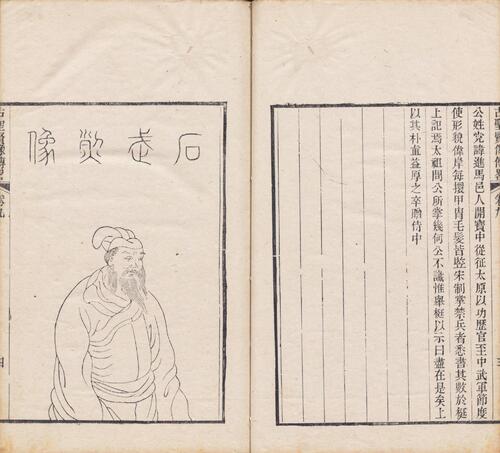 古聖賢像傳略 卷九
公姓党諱進馬邑人開寶中從征太原以功歷官至中武軍節度
使形貌偉岸每擐甲冑毛髮皆竪宋制掌禁兵者悉書其數於梃
上記焉太祖問公所掌幾何公不識惟舉梃以示曰盡在是矣上
以其朴直益厚之卒贈侍中
石武烈像
古聖賢像傳略 卷九